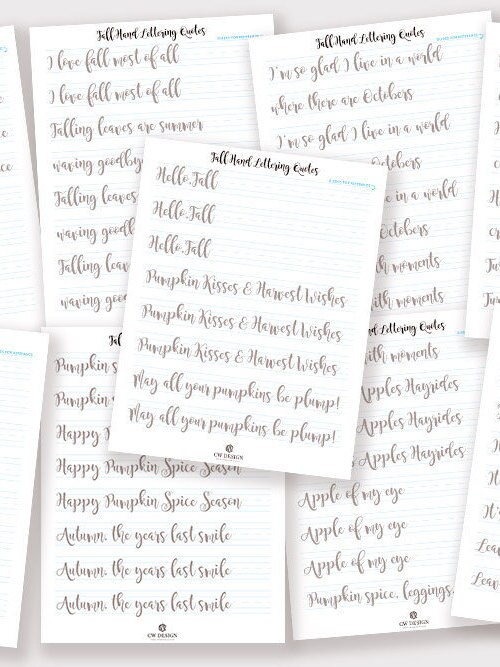 Fall Hand Lettering Quotes
I love fall most of all
I love fall most of all
Falling leaves are summer
waving goodby
Falling leaves
waving goodb
Falling leav
waving good
Fall Hand Lettering Quotes
I'm so glad I live in a world
where there are Octobers
I'm so glad I live in a world
Octobers
live in a world
Octobers
with moments
with moments
Fall Hand Lettering Quotes
Hello, Fall
Hello, Fall
Hello, Fall
Pumpkin Kisses & Harvest Wishes
Pumpkin Kisses & Harvest Wishes
Pumpkin Kisses & Harvest Wishes
May all your pumpkins be plump!
May all your pumpkins be plump!
CW DESIGN
Pumpkin S
Pumpkin
Happy P
Happy Pumpkin Spice Season
Happy Pumpkin Spice Season
Autumn, the years last smile
Autumn, the years last smile
Autumn, the years last smile
CW DESIGN
Hand Lettering Quotes
with moments
Apples Hayrides
Apples Hayrides
Apples Hayrides
Apple of my eye
Apple of my eye
Apple of my eye
Pumpkin spice, leggings,
CW DESIGN
It's
Lea
Lea